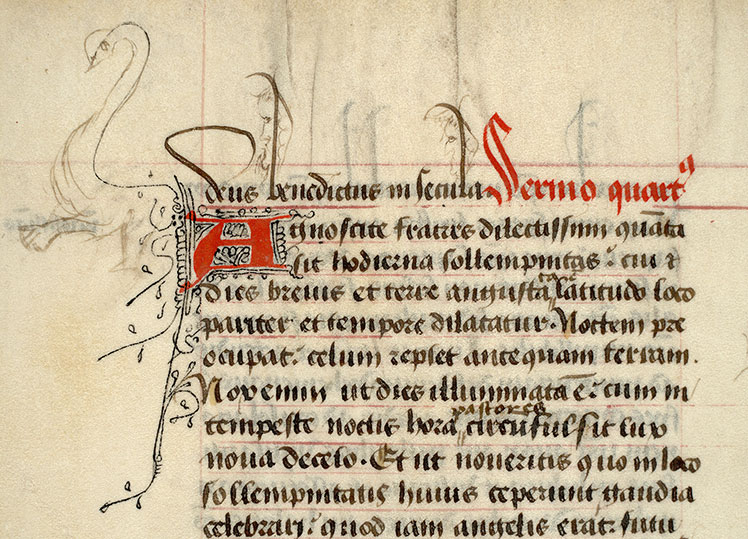 deus benedictus in secula Sermo quartꝰ
Agnoscite fratres dilectissimi quāta
sit hodierna sollempnitas: cui ⁊
dies breuis et terre angusta est latitudo loco
pariter et tempore dilatatur. Noctem pre
occupat: celum replet antequam terram.
Nox enim ut dies illuminata ē: cum in
tempeste noctis hora pastores circūfulsit lux
noua de celo. Et ut noueritis quo in loco
sollempnitatis huius ceperunt gaudia
celebrari: quod iam angelis erat: futu